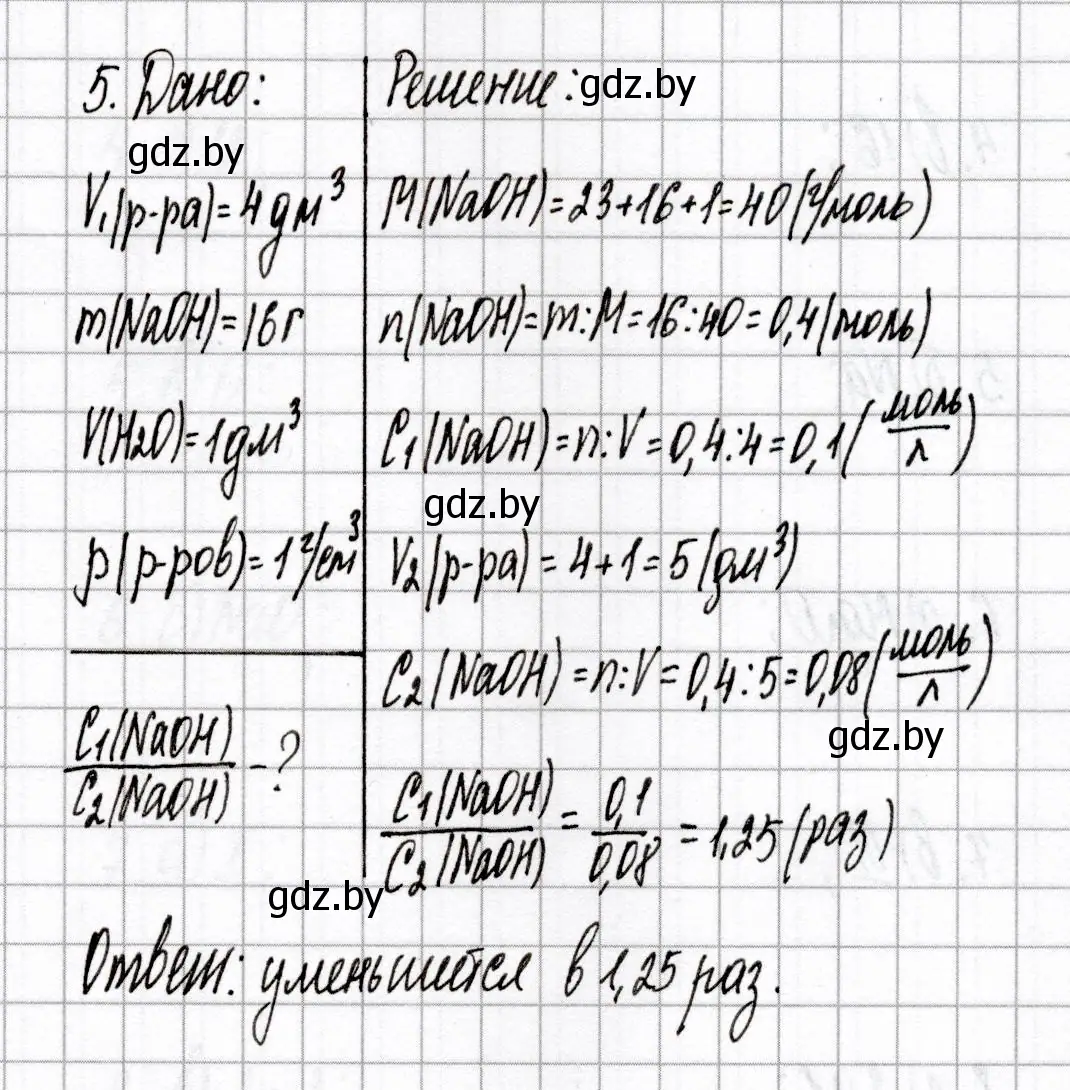 5. Дано:
gdz.by
V₁(р-ра)=4дм³
m(NaOH)=16г
V(H2O)=1дм³
ρ(р-ров)=1г/см³
C₁(NaOH)
C₂(NaOH)
-?
Решение:
gdz.by
M(NaOH)=23+16+1=40(г/моль)
n(NaOH)=m:M=16:40=0,4(моль)
C₁(NaOH)=n:V=0,4:4=0,1(моль/л)
gdz.by
V₂(р-ра)=4+1=5(дм³)
C₂(NaOH)=n:V=0,4:5=0,08(моль/л)
gdz.by
C₁(NaOH)/C₂(NaOH)=0,1/0,08=1,25(раз)
gdz.by
Ответ: уменьшится в 1,25 раз.